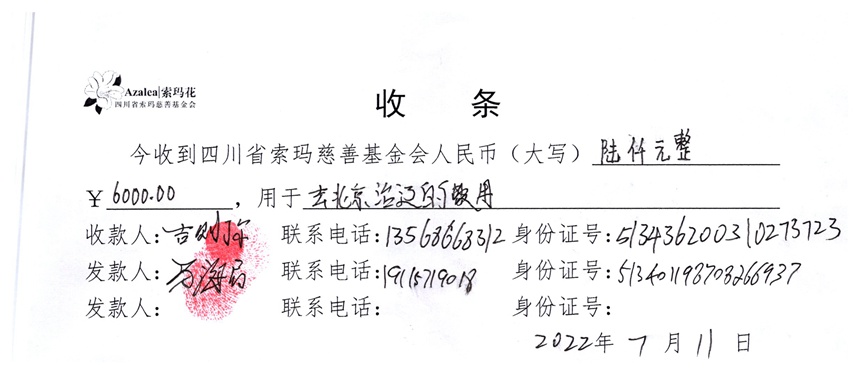 Azalea|索玛花
四川省索玛慈善基金会
收 条
今收到四川省索玛慈善基金会人民币（大写）陆仟元整
￥6000.00，用于去北京治疗的费用
收款人: 联系电话:13568668312 身份证号:513436200310273723
发款人: 联系电话:19115719018 身份证号:513401198708266937
发款人: 联系电话: 身份证号:
2022年 7 月 11 日